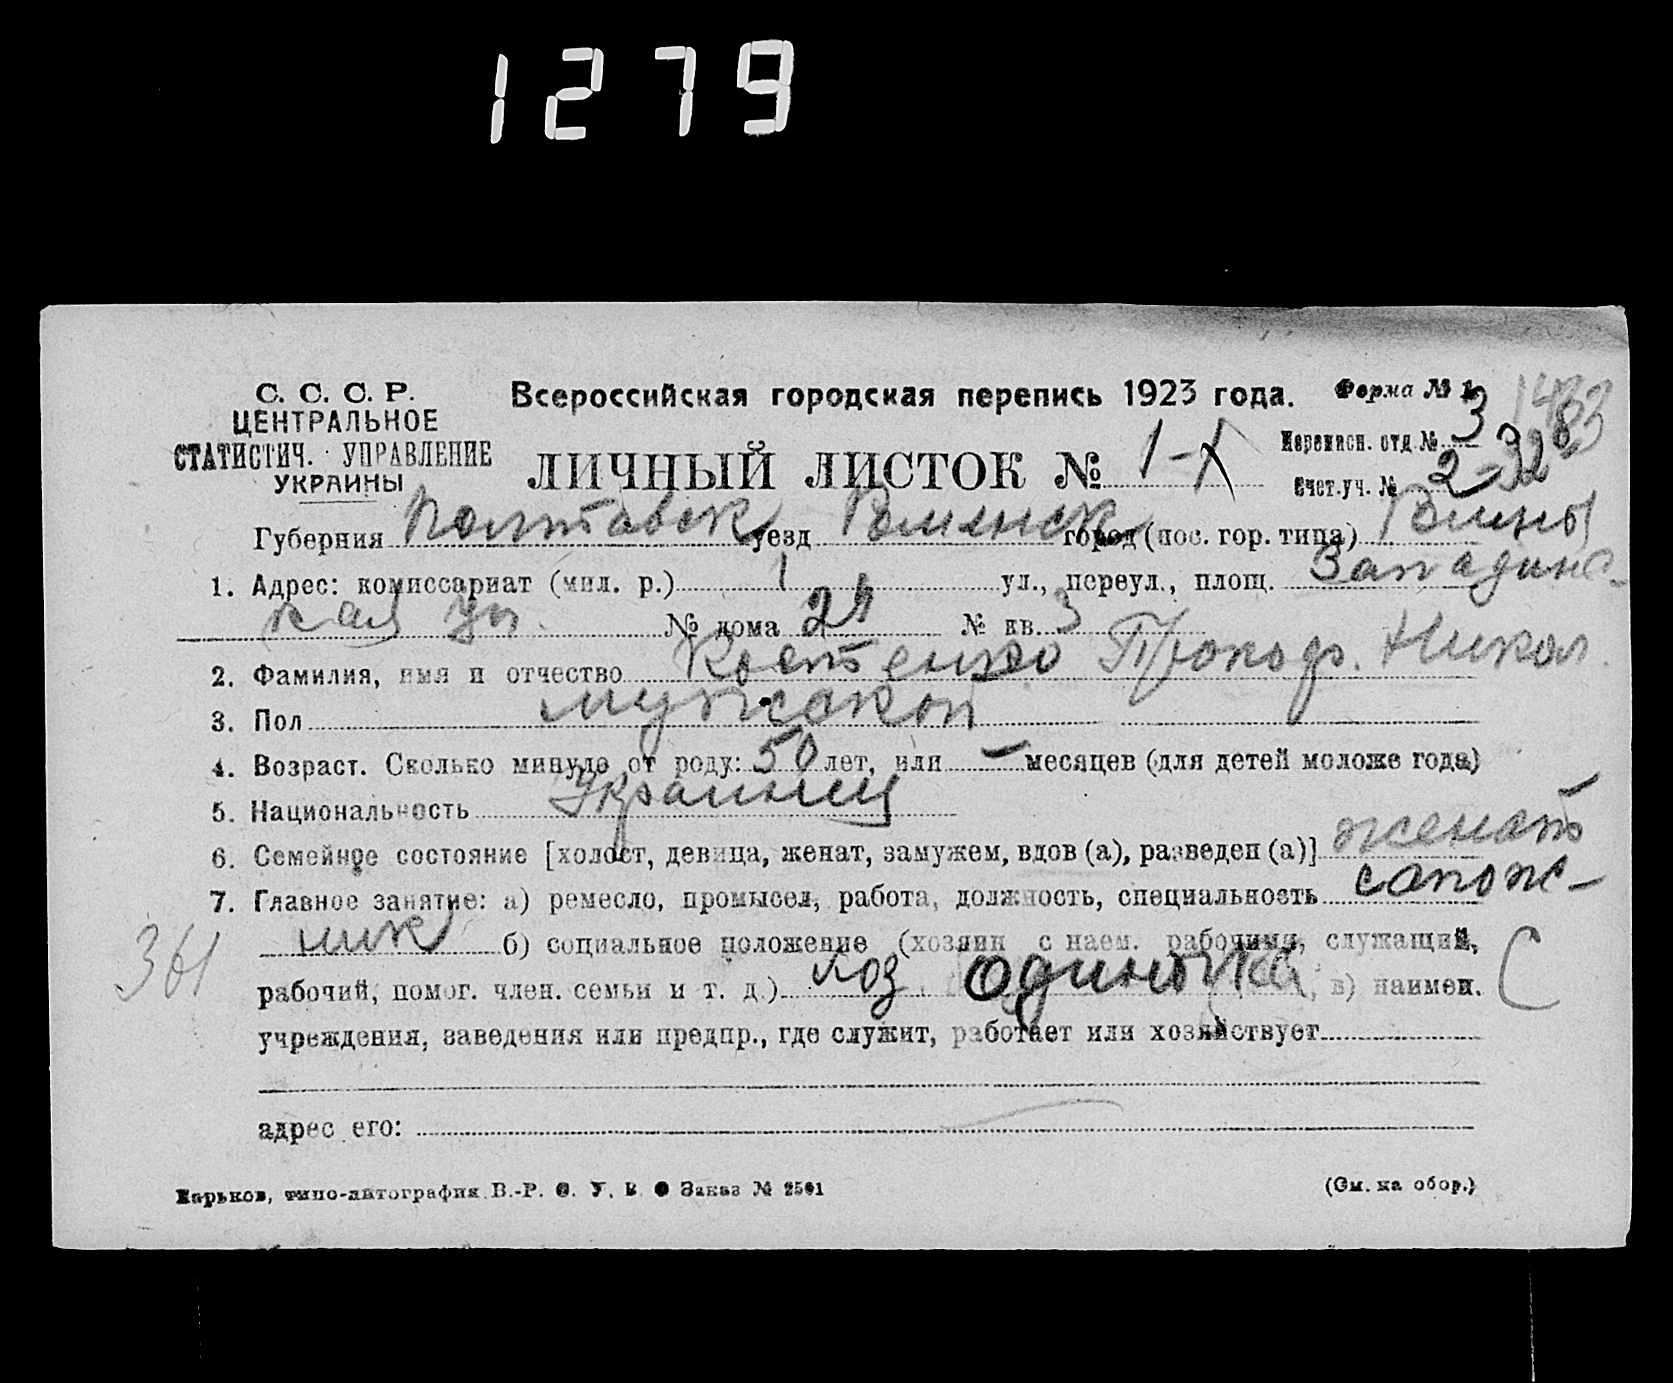 1279
С. С. С. Р.
ЦЕНТРАЛЬНОЕ
СТАТИСТИЧ. УПРАВЛЕНИЕ
УКРАИНЫ
Всероссийская городская перепись 1923 года.
Форма № 1
1483
ЛИЧНЫЙ ЛИСТОК № 1-X
Переписн. отд. № 3
Счет.уч. № 2-328
Губерния Полтавск уезд Роменск город (пос. гор. типа) Ромны
1. Адрес: комиссариат (мил. р.) 1 ул., переул., площ. Западинс-
кая ул. № дома 21 № кв. 3
2. Фамилия, имя и отчество Костенко Прокоф. Никол.
3. Пол мужской
4. Возраст. Сколько минуло от роду: 50 лет, или – месяцев (для детей моложе года)
5. Национальность Украинец
6. Семейное состояние [холост, девица, женат, замужем, вдов (а), разведен (а)] женат
7. Главное занятие: а) ремесло, промысел, работа, должность, специальность сапож-
361 ник б) социальное положение (хозяин с наем. рабочими, служащий,
рабочий, помог. член. семьи и т. д.) хоз одиночка, в) наимен. С
учреждения, заведения или предпр., где служит, работает или хозяйствует
адрес его:
Харьков, типо-литография В.-Р. Заказ № 2501
(См. на обор.)